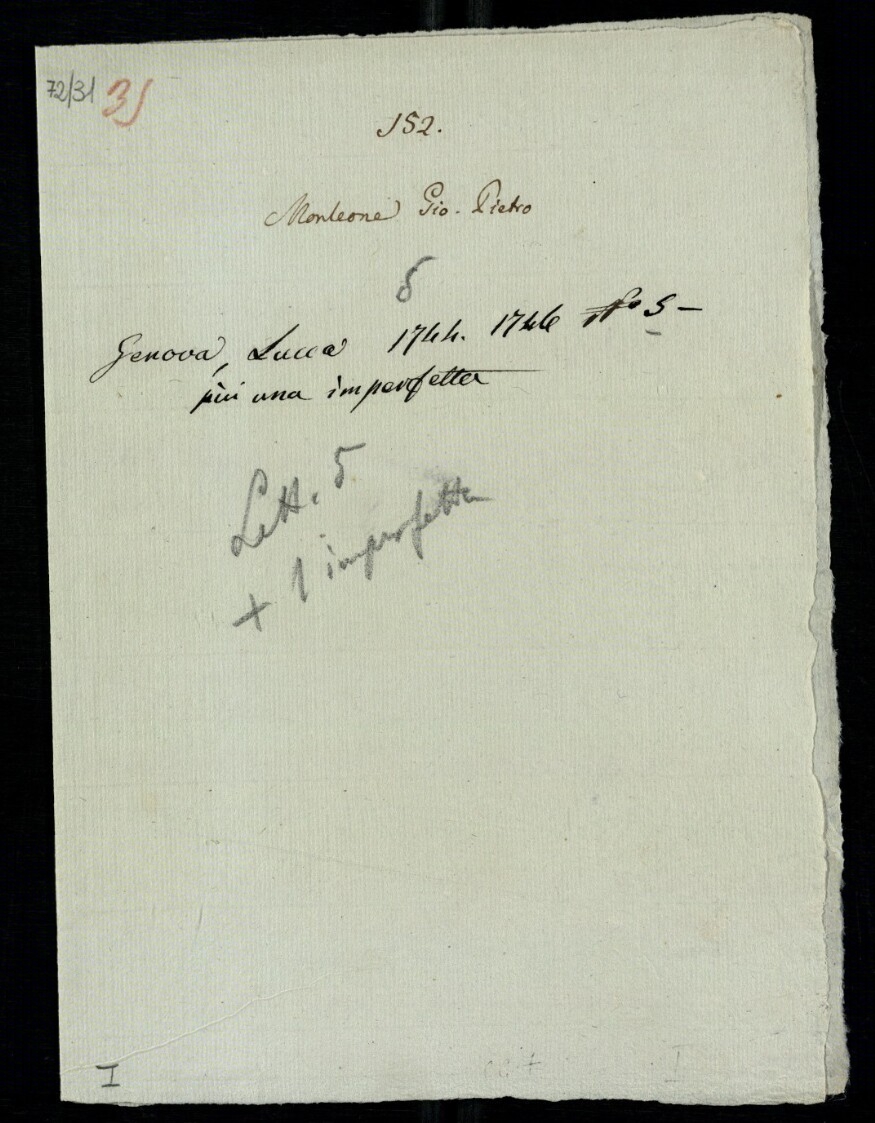 72/31 31
152.
Monleone Gio. Pietro
5
Genova, Lucca 1744. 1746 No 5 –
più una imperfetta
Lett. 5
+ 1 imperfetta
I